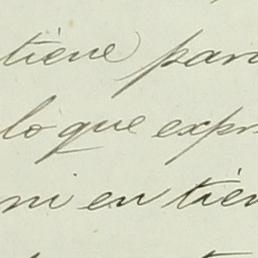 tiene par
lo que expr
ni en tien